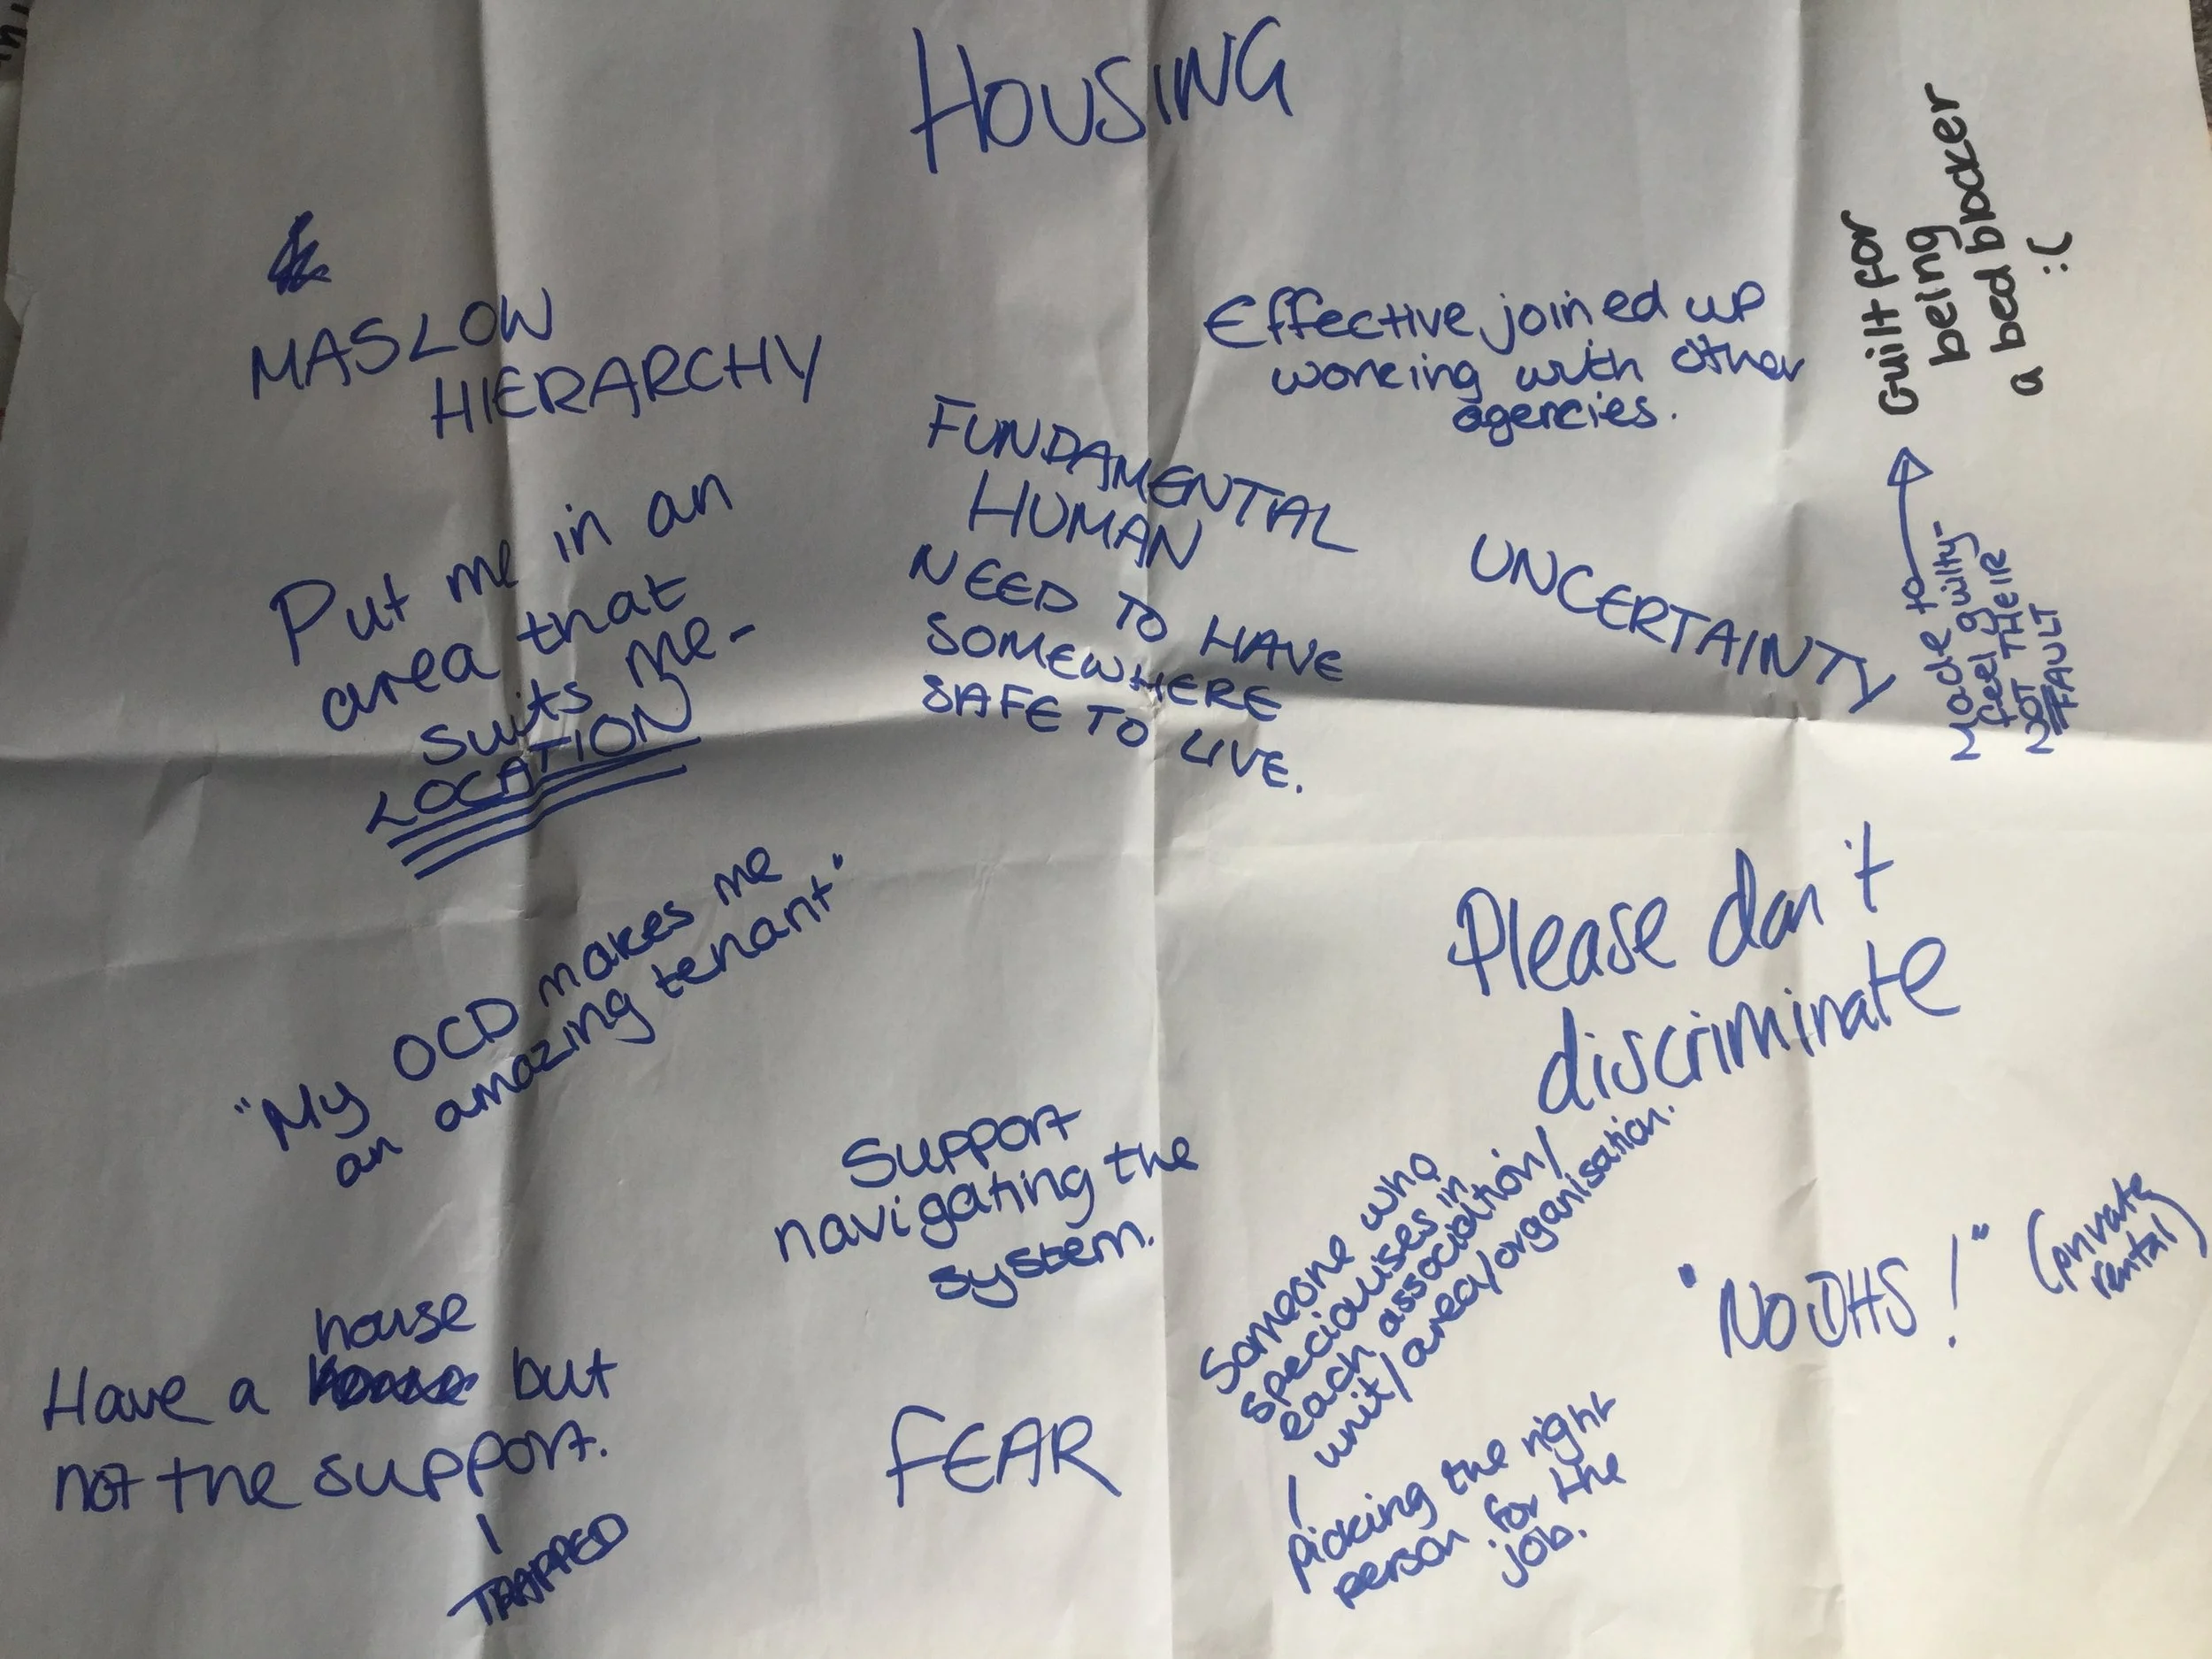 HOUSING
MASLOW
HIERARCHY
Effective, joined up
working with other
agencies.
Guilt for
being
a bed blocker
:(
Made to
feel guilty-
NOT THEIR
FAULT
FUNDAMENTAL
HUMAN
NEED TO HAVE
SOMEWHERE
SAFE TO LIVE.
UNCERTAINTY
Put me in an
area that
suits me-
LOCATION
"My OCD makes me
an amazing tenant"
Please don't
discriminate
Support
navigating the
system.
Someone who
specialises in
each association/
unit/area/organisation.
picking the right
person for the
job.
"NO DHS!" (private
rental)
house
Have a but
not the support.
TRAPPED
FEAR